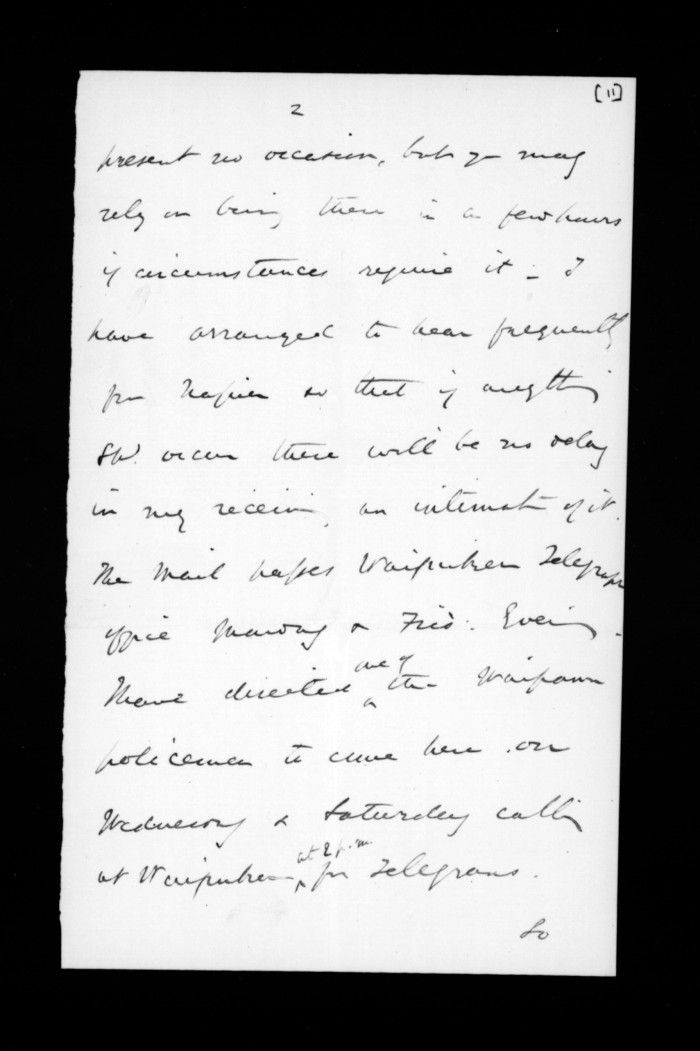 [11]
2
present no occasion, but yr may
rely on being there in a few hours
if circumstances require it – I
have arranged to hear frequently
from Napier so that if anything
shd. occur there will be no delay
in my receiving an intimatn of it.
The Mail passes Waipukurau Telegraph
office Monday & Frid. Evening.
I have directed one of the Waipawa
policemen to come here on
Wednesday & Saturday calling
at Waipukurau at 2 p.m. for Telegrams.
So